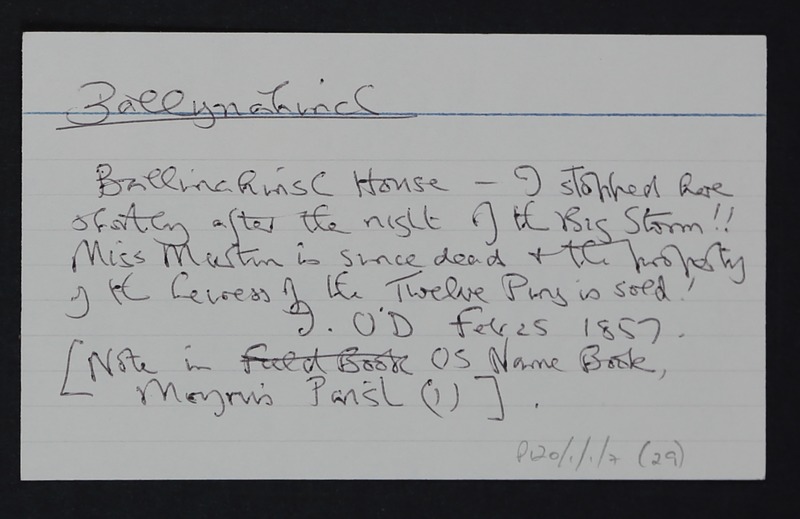 Ballynahinch
Ballinahinch House – I stopped here
shortly after the night of the Big Storm!!
Miss Martin is since dead & the property
of the heiress of the Twelve Pins is sold!
J. O'D Feb 25 1857.
[Note in Field Book OS Name Book,
Moyrus Parish (1)].
P120/1/1/7 (29)